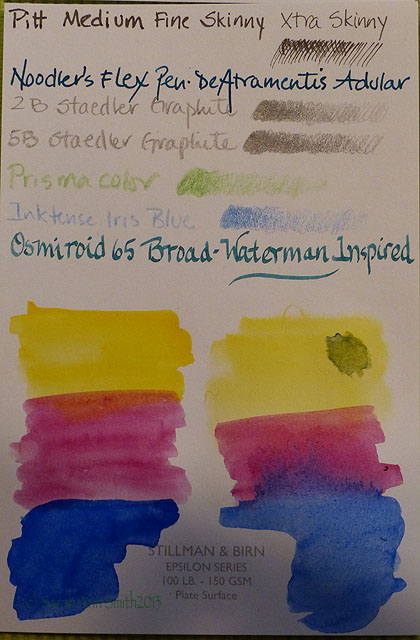 Pitt Medium Fine Skinny Xtra Skinny
Noodler's Flex Pen. DeAtramentis Adular
2B Staedler Graphite
5B Staedler Graphite
Prismacolor
Inktense Iris Blue
Osmiroid 65 Broad-Waterman Inspired
STILLMAN & BIRN
EPSILON SERIES
100 LB. - 150 GSM
Plate Surface
Smith2013